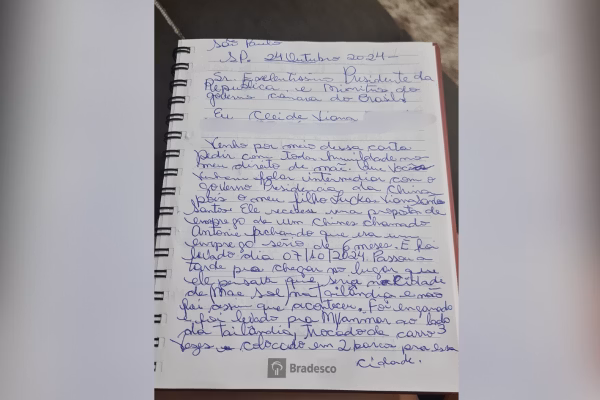 São Paulo
SP. 24 Outubro 2024 -
Sr. Excelentíssimo Presidente da
República e Ministros do
governo do Brasil
Eu, Cleide Viana
Venho por meio dessa carta
pedir com toda humildade no
meu direito de mãe. Que vocês
venham falar intermediar com o
governo Presidencia da China
pois o meu filho Luckas Viana
Santos. Ele recebeu uma proposta de
emprego de um Chines chamado
Antonie achando que era um
emprego sério de 6 meses. E foi
levado dia 07/10/2024. Passou a
tarde pra chegar no lugar que
ele pensava que seria na cidade
de Mae Sot na Tailândia e não
foi assim que aconteceu. Foi enganado
e foi levado pra Myanmar ao lado
da Tailândia, trocado de carro 3
vezes e colocado em 2 barcos pra essa
cidade.
Bradesco